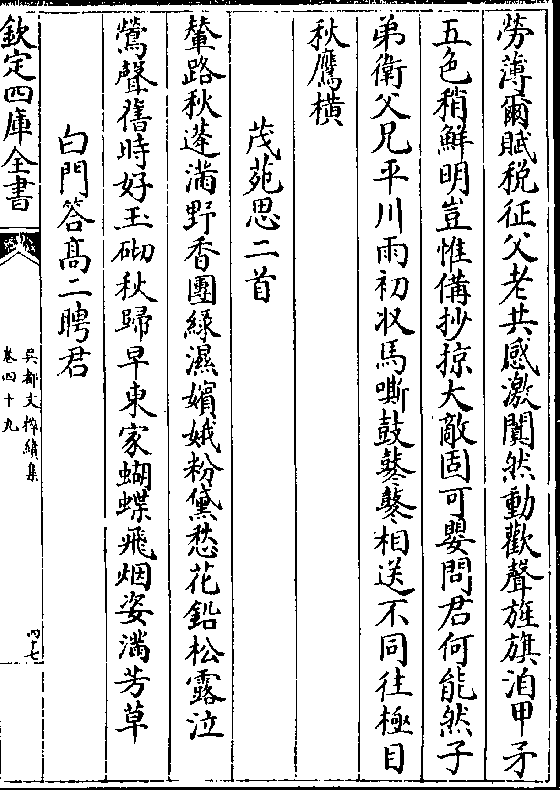 勞薄爾賦税征父老共感激闐然動歡聲旌旗洎甲矛
五色稍鮮明豈惟備抄掠大敵固可嬰問君何能然子
弟衛父兄平川雨初收馬嘶鼓鼕鼕相送不同往極目
秋鷹横
茂苑思二首
輦路秋蓮滿野香團綠濕嬪娥粉黛愁花鉛松露泣
鶯聲舊時好玉砌秋歸早東家蝴蝶飛烟姿滿芳草
白門答高二聘君
欽定四庫全書
吳都文粹續集
卷四十九
四七